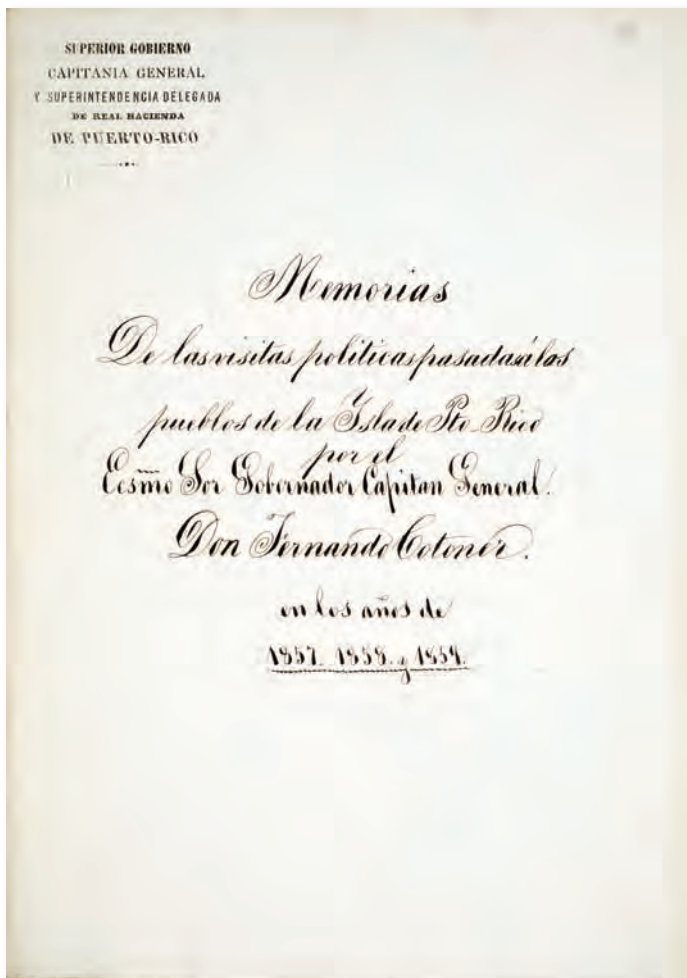 SUPERIOR GOBIERNO
CAPITANIA GENERAL
Y SUPERINTENDENCIA DELEGADA
DE REAL HACIENDA
DE PUERTO-RICO
Memorias
De las visitas politicas pasadas á los
pueblos de la Isla de Pto. Rico
por el
Ecsmo Sor Gobernador Capitan General.
Don Fernando Cotoner.
en los años de
1857. 1858. y 1859.